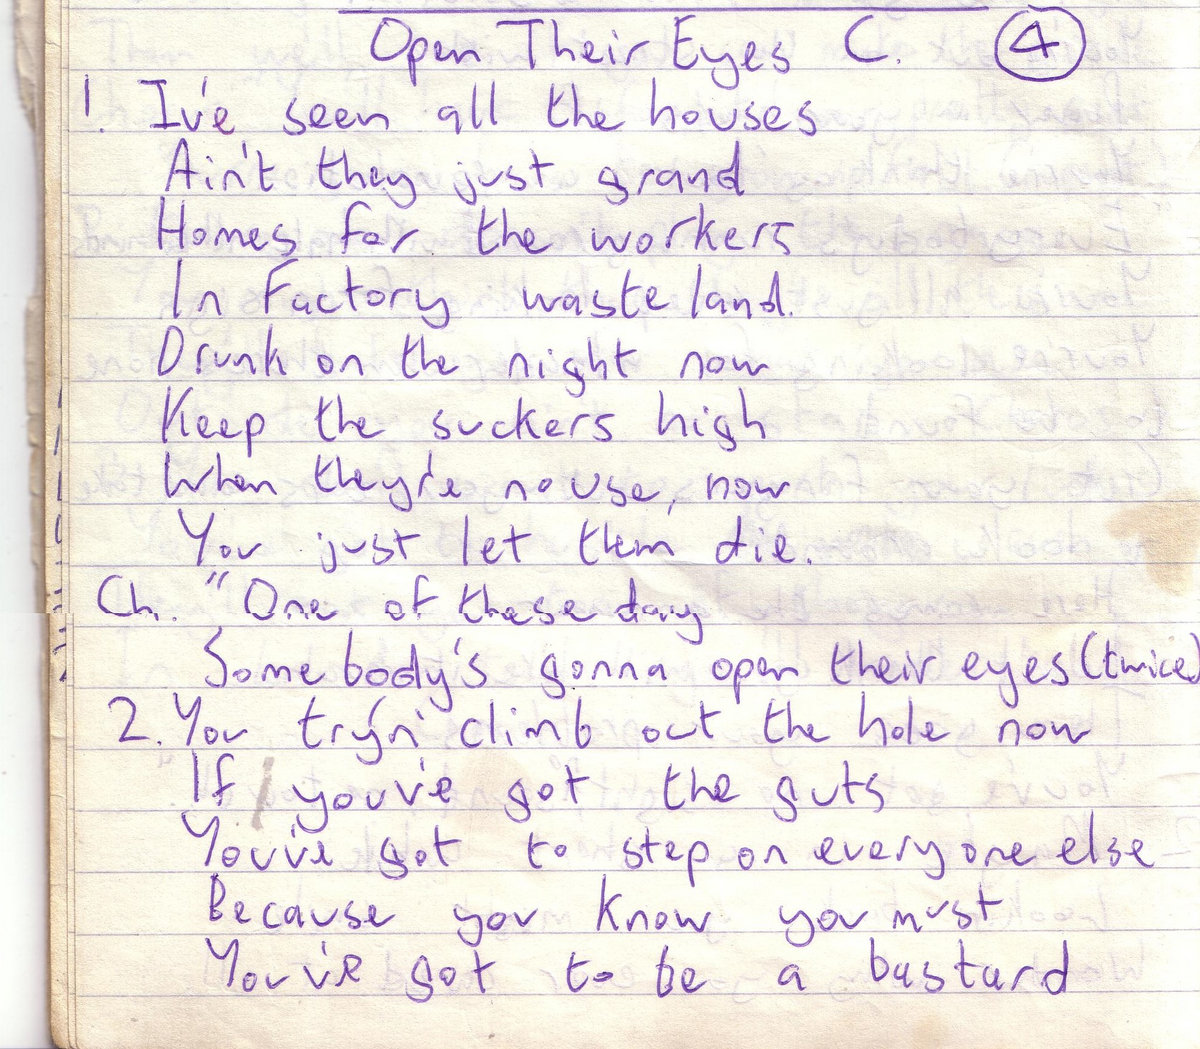 Open Their Eyes C. 4
1. I've seen all the houses
Ain't they just grand
Homes for the workers
In Factory wasteland.
Drunk on the night now
Keep the suckers high
When they're no use, now
You just let them die.
Ch. "One of these day
Somebody's gonna open their eyes (twice)
2. You tryin' climb out the hole now
If you've got the guts
You've got to step on everyone else
Because you know you must
You've got to be a bastard